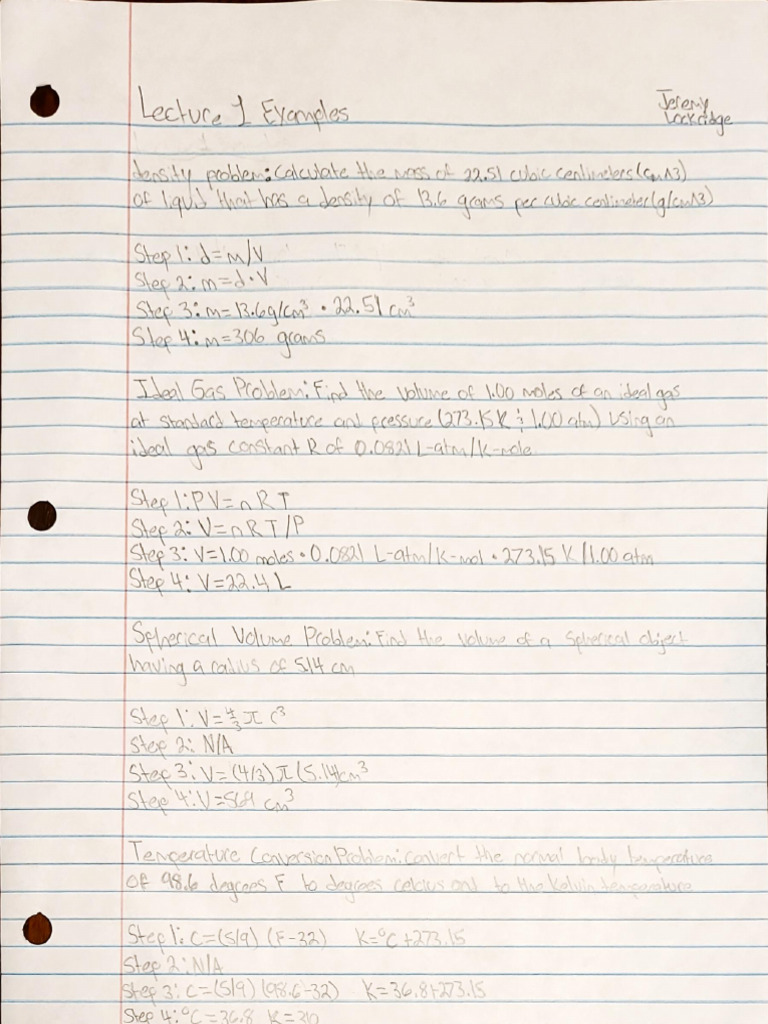 Lecture 1 Examples
Jeremy
Lockridge
density problem: Calculate the mass of 22.51 cubic centimeters (cm^3)
of liquid that has a density of 13.6 grams per cubic centimeter (g/cm^3)
Step 1: d=m/V
Step 2: m=d•V
Step 3: m=13.6g/cm³ • 22.51 cm³
Step 4: m=306 grams
Ideal Gas Problem: Find the volume of 1.00 moles of an ideal gas
at standard temperature and pressure (273.15 K & 1.00 atm) using an
ideal gas constant R of 0.0821 L-atm/K-mole.
Step 1: PV=nRT
Step 2: V=nRT/P
Step 3: V=1.00 moles • 0.0821 L-atm/K-mol • 273.15 K/1.00 atm
Step 4: V=22.4 L
Spherical Volume Problem: Find the volume of a spherical object
having a radius of 5.14 cm
Step 1: V=4/3 π r³
Step 2: N/A
Step 3: V=(4/3)π(5.14)cm³
Step 4: V=569 cm³
Temperature Conversion Problem: convert the normal body temperature
of 98.6 degrees F to degrees celcius and to the Kelvin temperature
Step 1: C=(5/9) (F-32) K=°C+273.15
Step 2: N/A
Step 3: C=(5/9) (98.6-32) K=36.8+273.15
Step 4: °C=36.8 K=310